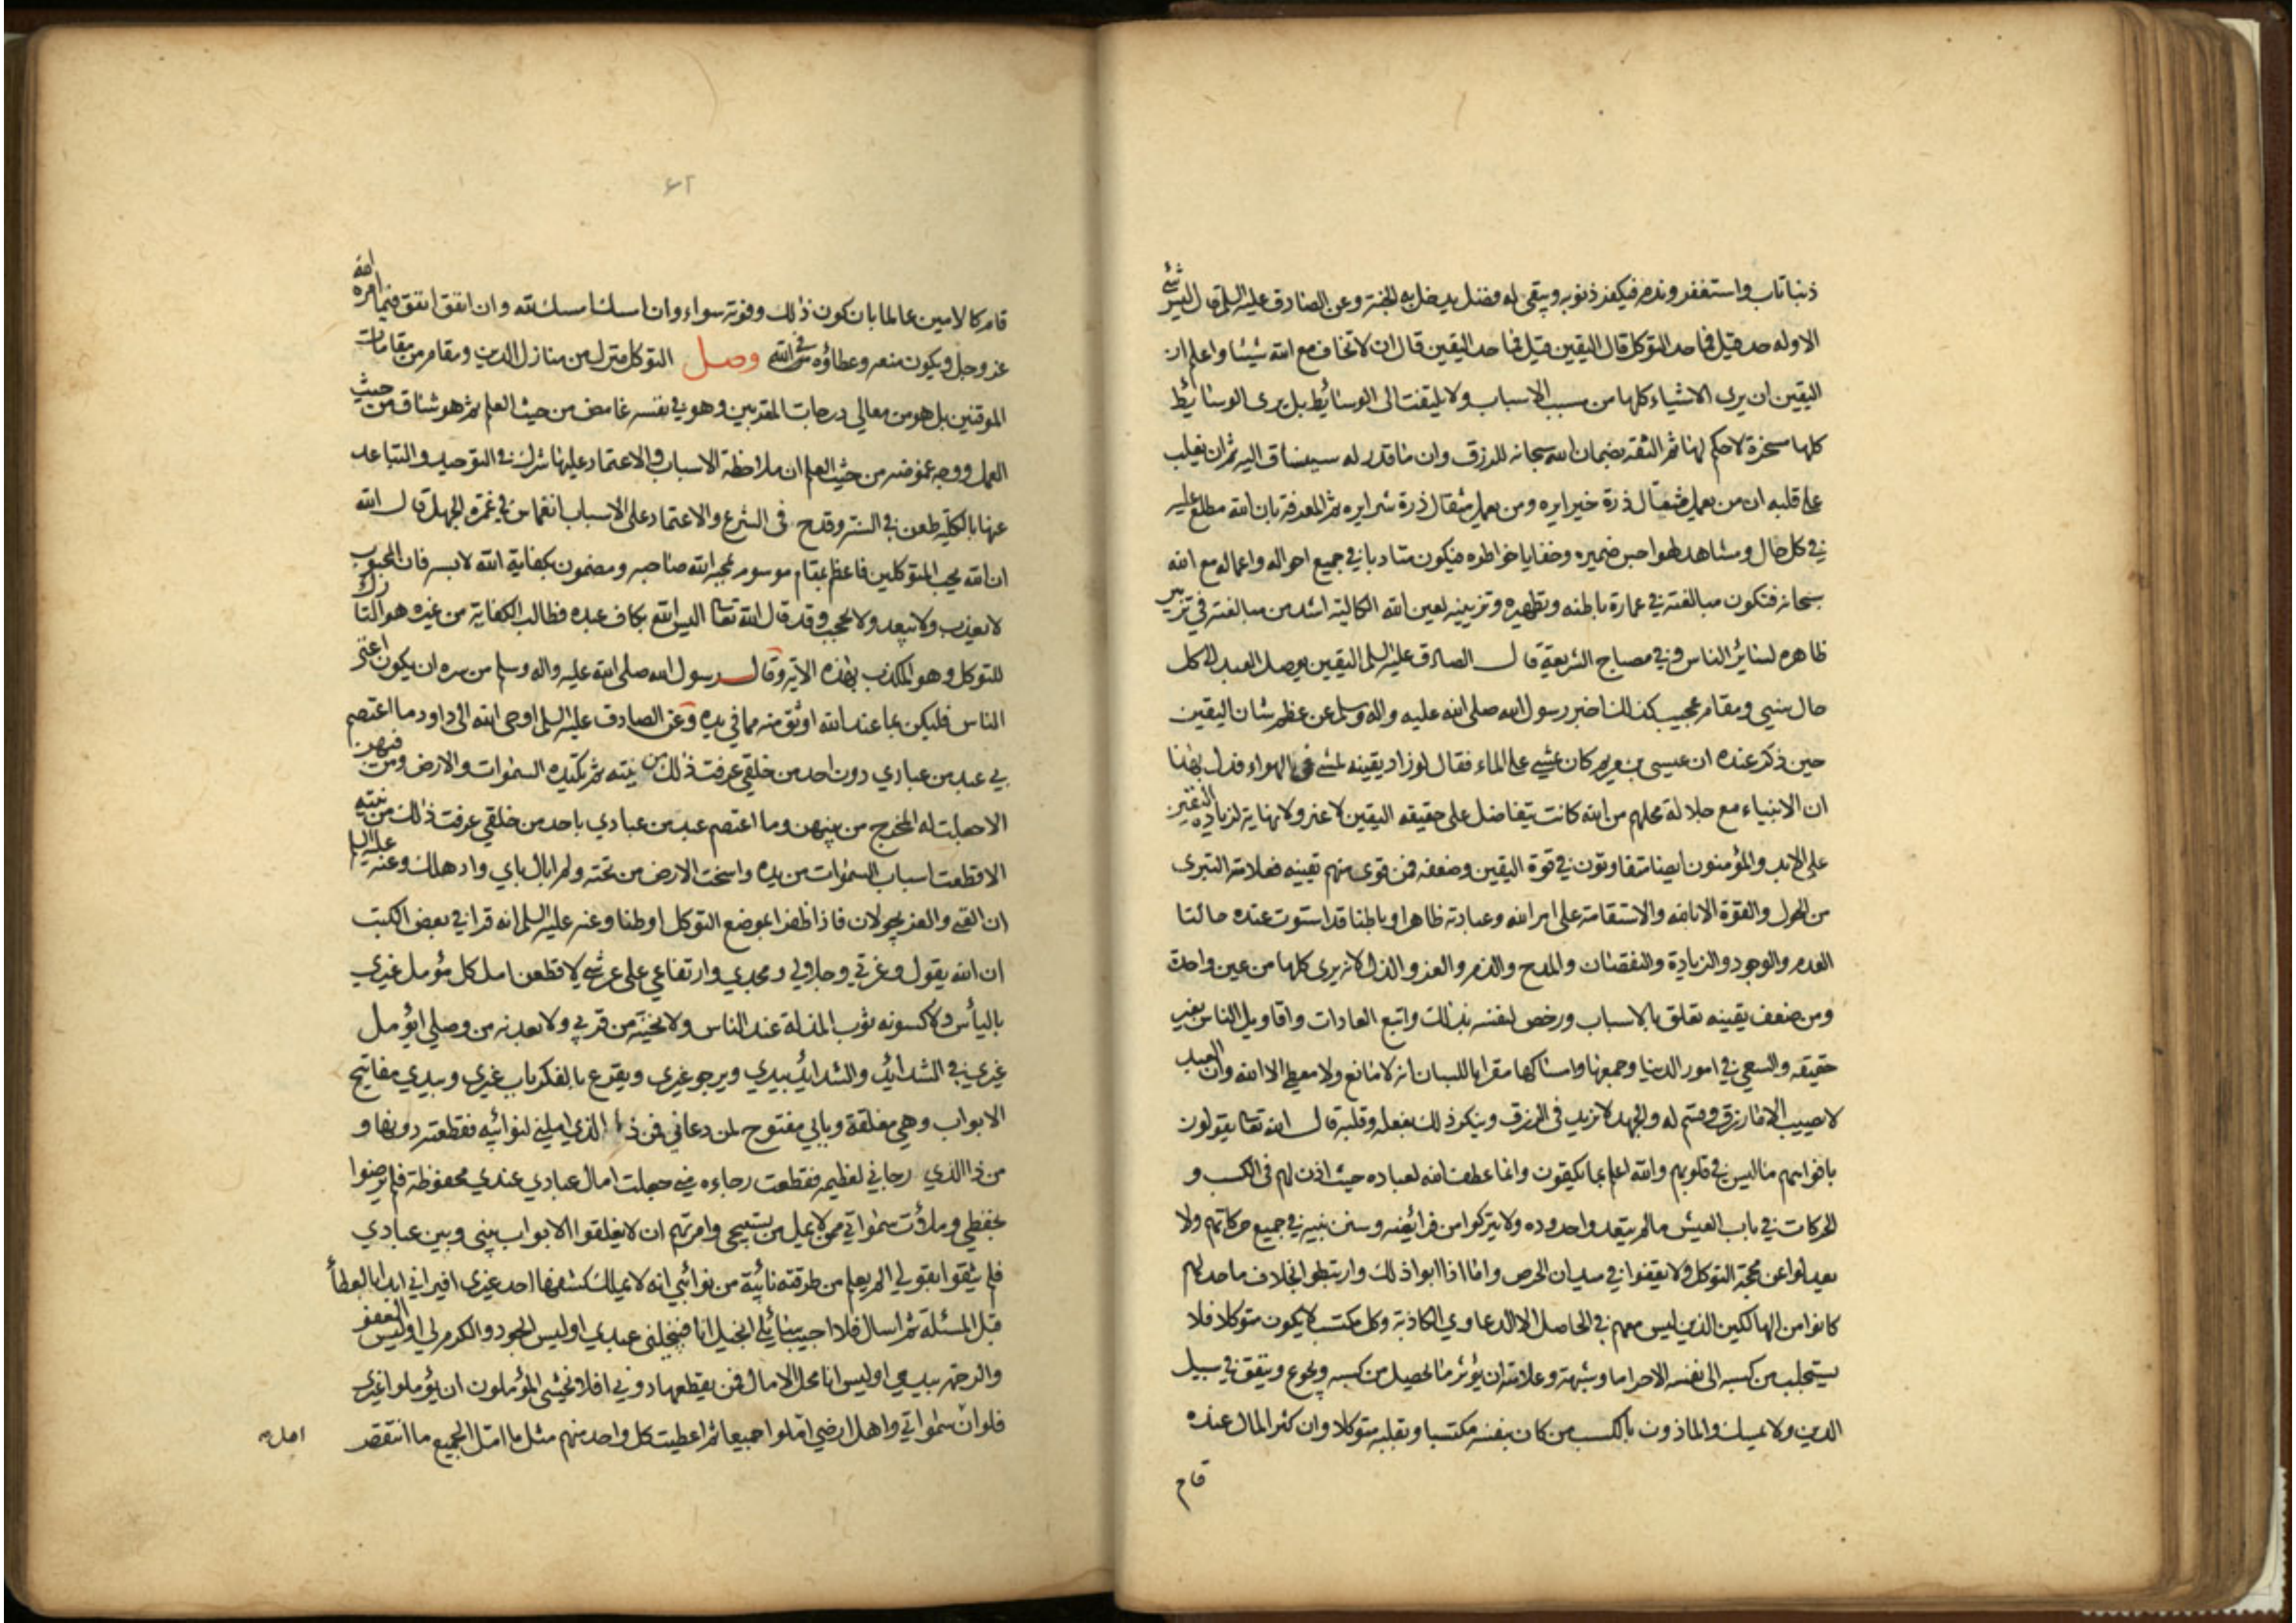 ذنبا تاب واستغفر وندم فيكفر ذنوبه ويبقى له فضل يدخل به الجنة وعن الصادق عليه السلم قال ليس شئ
الا وله حد قيل فما حد التوكل قال اليقين قيل فما حد اليقين قال ان لا تخاف مع الله شيئا واعلم ان
اليقين ان يرى الاشياء كلها من مسبب الاسباب ولا يلتفت الى الوسائط بل يرى الوسائط
كلها مسخرة لا حكم لها ثم الثقه بضمان الله سبحانه للرزق وان ما قدر له سيساق اليه ثم ان يغلب
على قلبه ان من يعمل مثقال ذرة خيرا يره ومن يعمل مثقال ذرة شرا يره ثم المعرفة بان الله مطلع عليه
في كل حال ومشاهد لهواجس ضميره وخفايا خواطره فيكون متادبا في جميع احواله واعماله مع الله
سبحانه فتكون مبالغته في عمارة باطنه وتطهيره وتزيينه لعين الله الكالية اشد من مبالغته في تزيين
ظاهره لسائر الناس وفي مصباح الشريعة قال الصادق عليه السلم اليقين يوصل العبد الى كل
حال سني ومقام عجيب كذلك اخبر رسول الله صلى الله عليه واله وسلم عن عظم شان اليقين
حين ذكر عنده ان عيسى بن مريم كان يمشي على الماء فقال لو زاد يقينه لمشى في الهواء فدل بهذا
ان الانبياء مع جلالة محلهم من الله كانت يتفاضل على حقيقه اليقين لا غير ولا نهاية لزيادة اليقين
على الابد والمؤمنون ايضا متفاوتون في قوة اليقين وضعفه فمن قوى منهم يقينه فعلامته التبرى
من الحول والقوة الا بالله والاستقامة على امر الله وعبادته ظاهرا وباطنا قد استوت عنده حالتا
العدم والوجود والزيادة والنقصان والمدح والذم والعز والذل لانه يرى كلها من عين واحدة
ومن ضعف يقينه تعلق بالاسباب ورخص لنفسه بذلك واتبع العادات واقاويل الناس بغير
حقيقه والسعي في امور الدنيا وجمعها وامساكها مقرا باللسان انه لا مانع ولا معطي الا الله وان العبد
لا يصيب الا ما رزق وقسم له والجهد لا يزيد في الرزق وينكر ذلك بفعله وقلبه قال الله تعالى يقولون
بافواههم ما ليس في قلوبهم والله اعلم بما يكتمون وانما عطف الله لعباده حيث اذن لهم في الكسب و
الحركات في باب العيش ما لم يتعدوا حدوده ولا يتركوا من فرائضه وسنن نبيه في جميع حركاتهم ولا
يعدلوا عن محجة التوكل ولا يقفوا في ميدان الحرص واما اذا ابوا ذلك وارتبطوا بخلاف ما حد لهم
كانوا من الهالكين الذين ليس معهم في الحاصل الا الدعاوي الكاذبة وكل مكتسب لا يكون متوكلا فلا
يستجلب من كسبه الى نفسه الا حراما وشبهة وعلامته ان يؤثر ما يحصل من كسبه ويجوع وينفق في سبيل
الدين ولا يمسك والماذون بالكسب من كان بنفسه مكتسبا وبقلبه متوكلا وان كثر المال عنده
قام
٤٢
قام كالامين عالما بان كون ذلك وفوته سواء وان امسك امسك لله وان انفق انفق فيما امره الله
عز وجل ويكون منعه وعطاؤه في الله وصل التوكل منزل من منازل الدين ومقام من مقامات
الموقنين بل هو من معالي درجات المقربين وهو في نفسه غامض من حيث العلم ثم هو شاق من حيث
العمل ووجه غموضه من حيث العلم ان ملاحظة الاسباب والاعتماد عليها شرك في التوحيد والتباعد
عنها بالكلية طعن في السنة وقدح في الشرع والاعتماد على الاسباب انغماس في غمرة الجهل قال الله
ان الله يحب المتوكلين فاعظم بمقام موسوم بمحبة الله صاحبه ومضمون بكفاية الله لابسه فان المحبوب
لا يعذب ولا يبعد ولا يحجب وقد قال الله تعالى اليس الله بكاف عبده فطالب الكفاية من غيره هو التارك
للتوكل وهو المكذب بهذه الاية وقال رسول الله صلى الله عليه واله وسلم من سره ان يكون اغنى
الناس فليكن بما عند الله اوثق منه مما في يده وعن الصادق عليه السلم اوحى الله الى داود ما اعتصم
بي عبد من عبادي دون احد من خلقي عرفت ذلك من نيته ثم تكيده السموات والارض ومن فيهن
الا جعلت له المخرج من بينهن وما اعتصم عبد من عبادي باحد من خلقي عرفت ذلك من نيته
الا قطعت اسباب السموات من يده واسخت الارض من تحته ولم ابال باي واد هلك وعنه عليه السلم
ان الغنى والعز يجولان فاذا ظفرا بموضع التوكل اوطنا وعنه عليه السلم انه قرا في بعض الكتب
ان الله يقول وعزتي وجلالي ومجدي وارتفاعي على عرشي لاقطعن امل كل مؤمل غيري
بالياس ولاكسونه ثوب المذلة عند الناس ولانحينه من قربي ولابعدنه من وصلي ايؤمل
غيري في الشدائد والشدائد بيدي ويرجو غيري ويقرع بالفكر باب غيري وبيدي مفاتيح
الابواب وهي مغلقة وبابي مفتوح لمن دعاني فمن ذا الذي املني لنوائبه فقطعته دونها و
من ذا الذي رجاني لعظيمه فقطعت رجاءه مني جعلت امال عبادي عندي محفوظة فلم يرضوا
بحفظي وملأت سمواتي ممن لا يمل من تسبيحي وامرتهم ان لا يغلقوا الابواب بيني وبين عبادي
فلم يثقوا بقولي الم يعلم من طرقته نائبة من نوائبي انه لا يملك كشفها احد غيري افيراني ابدا بالعطأ
قبل المسئلة ثم اسال فلا اجيب سائلي ابخيل انا فيبخلني عبدي اوليس الجود والكرم لي اوليس العفو
والرحمة بيدي اوليس انا محل الامال فمن يقطعها دوني افلا يخشى المؤملون ان يؤملوا غيري
فلو ان سمواتي واهل ارضي املوا جميعا ثم اعطيت كل واحد منهم مثل ما امل الجميع ما انتقص
اهل